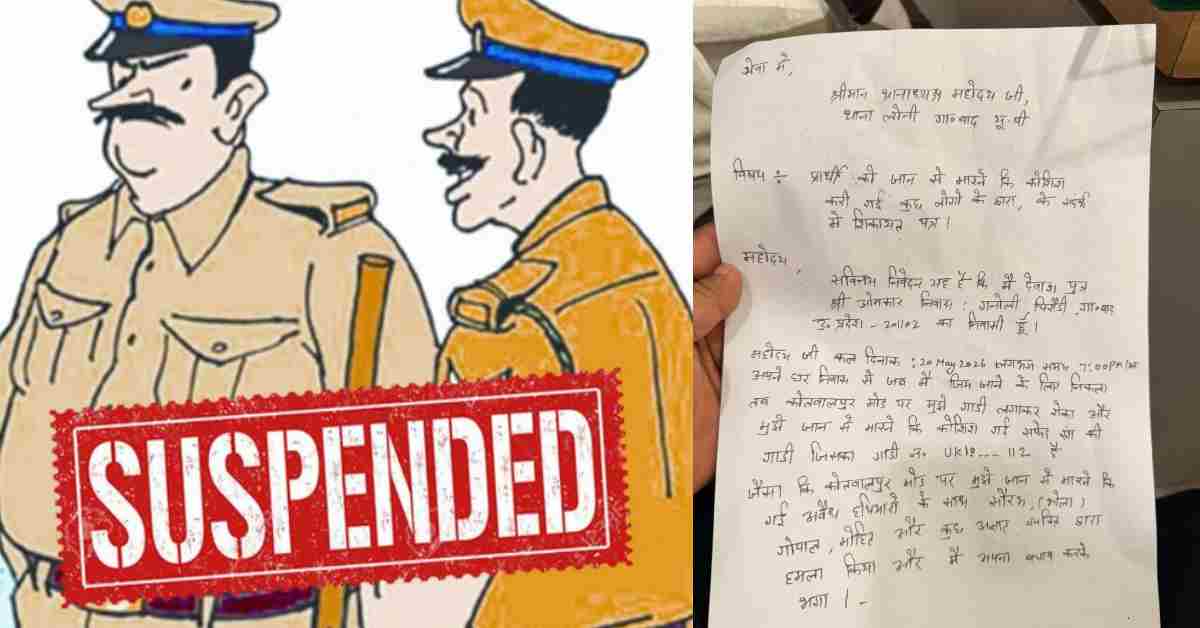 SUSPENDED
सेवा में,
श्रीमान थानाध्यक्ष महोदय जी,
थाना लोनी गा०बाद यू.पी
विषय :- प्रार्थी की जान से मारने कि कोशिश
करी गई कुछ लोगो के द्वारा, के संदर्भ
मे शिकायत पत्र।
महोदय,
सविनय निवेदन यह है कि मैं देवांश पुत्र
श्री ओमकार निवास : गनोली गा०बाद
उ० प्रदेश - 201102 का निवासी हूँ।
महोदय जी कल दिनांक : 20 May 2026 लगभग समय 7:00PM
अपने घर निवास से जब मैं जिम जाने के लिए निकला
तब कोतवालपुर मोड पर मुझे गाडी लगाकर रोका और
मुझे जान से मारने कि कोशिश गई सफेद रंग की
गाडी जिसका गाडी न० UK18---112 है
जैसा कि कोतवालपुर मोड पर मुझे जान से मारने कि
गई अवैध हथियारो के साथ सौरभ, (भोला)
गोपाल, मोहित और कुछ अज्ञात व्यक्ति द्वारा
हमला किया और मैं अपना बचाव करके
भागा।-